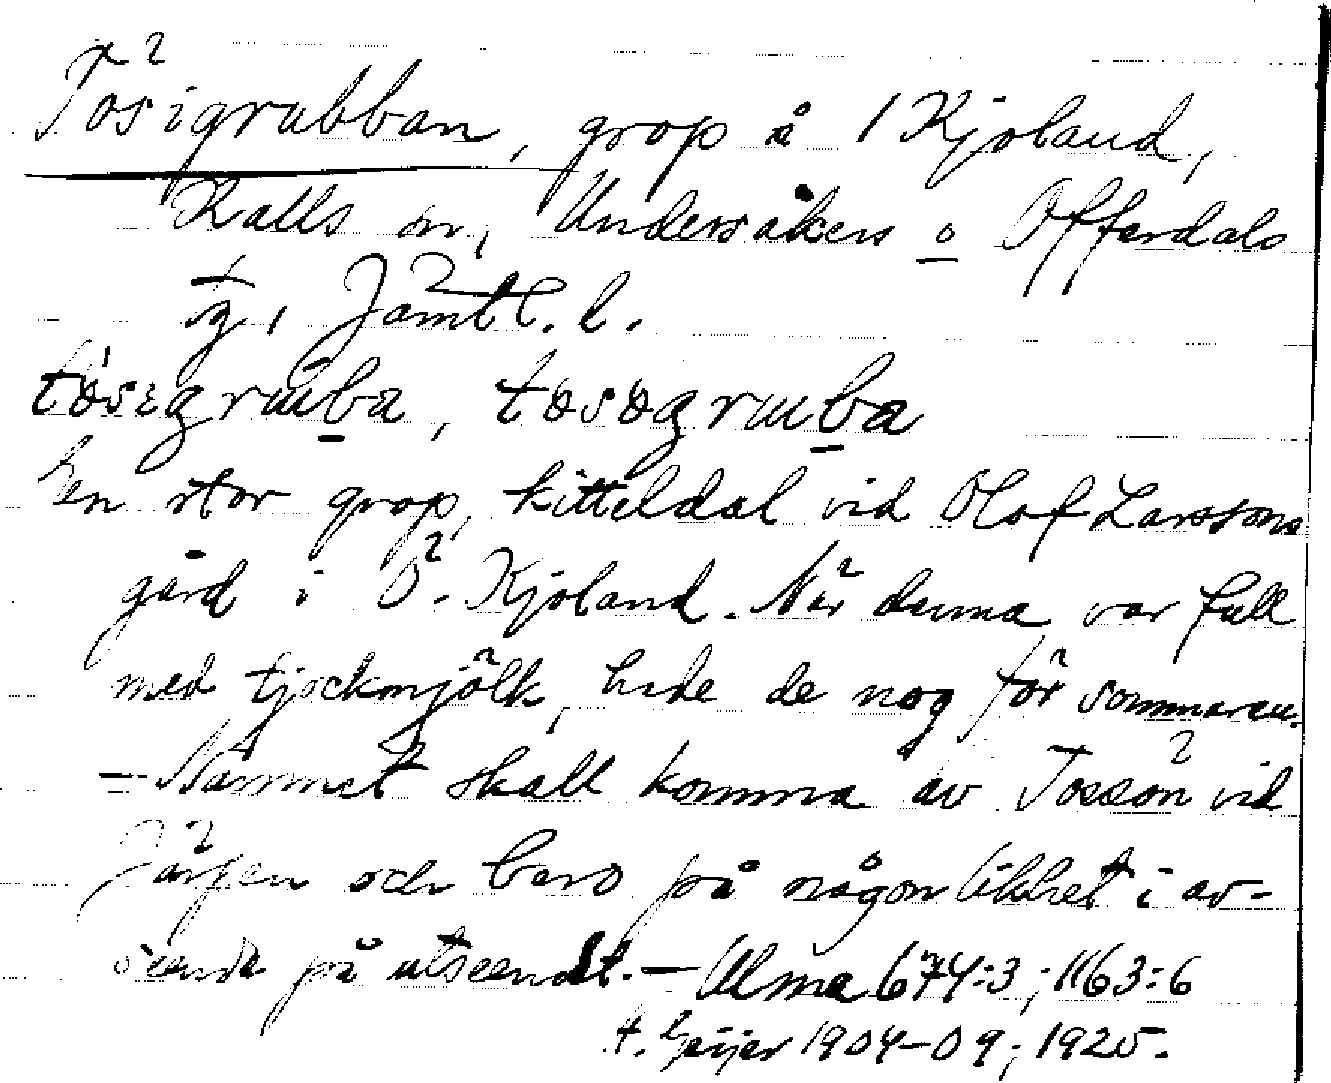 Tösigrubban, grop å 1 Kjoland,
Kalls sn, Undersåkers o Offerdals
tg, Jämtl. l.
En stor grop, kitteldal vid Olof Larssons
gård i Ö. Kjoland. När denna var full
med tjockmjölk, hade de nog för sommaren.
– Namnet skall komma av Tossön vid
Järpen och bero på någon likhet i av-
seende på utseendet. – Ulma 674:3; 1163:6
H. Geijer 1904–09; 1925.